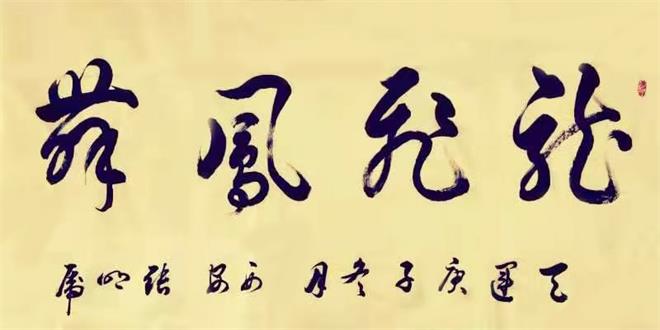 龍飛鳳舞
天運庚子冬月 西安 張